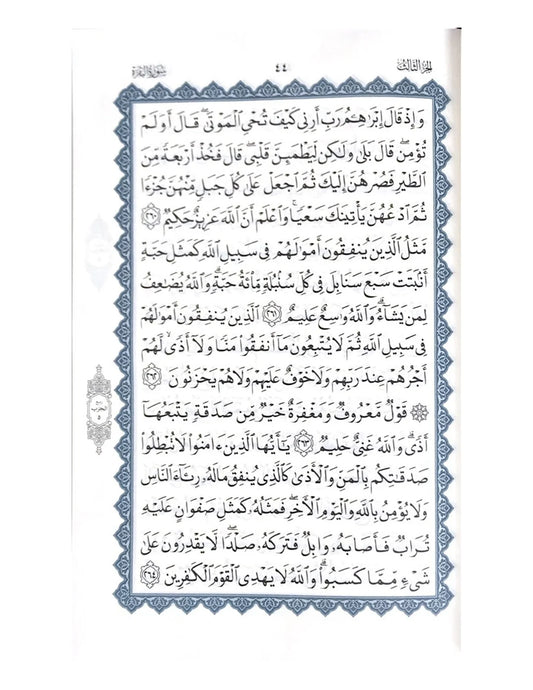 الجزء الثالث
٤٤
سورة البقرة
وَإِذْ قَالَ إِبْرَٰهِـۧمُ رَبِّ أَرِنِى كَيْفَ تُحْىِ ٱلْمَوْتَىٰ ۖ قَالَ أَوَلَمْ
تُؤْمِن ۖ قَالَ بَلَىٰ وَلَـٰكِن لِّيَطْمَئِنَّ قَلْبِى ۖ قَالَ فَخُذْ أَرْبَعَةً مِّنَ
ٱلطَّيْرِ فَصُرْهُنَّ إِلَيْكَ ثُمَّ ٱجْعَلْ عَلَىٰ كُلِّ جَبَلٍ مِّنْهُنَّ جُزْءًا
ثُمَّ ٱدْعُهُنَّ يَأْتِينَكَ سَعْيًا ۚ وَٱعْلَمْ أَنَّ ٱللَّهَ عَزِيزٌ حَكِيمٌ ٢٦٠
مَّثَلُ ٱلَّذِينَ يُنفِقُونَ أَمْوَٰلَهُمْ فِى سَبِيلِ ٱللَّهِ كَمَثَلِ حَبَّةٍ
أَنۢبَتَتْ سَبْعَ سَنَابِلَ فِى كُلِّ سُنۢبُلَةٍ مِّا۟ئَةُ حَبَّةٍ ۗ وَٱللَّهُ يُضَـٰعِفُ
لِمَن يَشَآءُ ۗ وَٱللَّهُ وَٰسِعٌ عَلِيمٌ ٢٦١ ٱلَّذِينَ يُنفِقُونَ أَمْوَٰلَهُمْ
فِى سَبِيلِ ٱللَّهِ ثُمَّ لَا يُتْبِعُونَ مَآ أَنفَقُوا۟ مَنًّا وَلَآ أَذًى ۙ لَّهُمْ
أَجْرُهُمْ عِندَ رَبِّهِمْ وَلَا خَوْفٌ عَلَيْهِمْ وَلَا هُمْ يَحْزَنُونَ ٢٦٢
۞ قَوْلٌ مَّعْرُوفٌ وَمَغْفِرَةٌ خَيْرٌ مِّن صَدَقَةٍ يَتْبَعُهَآ
أَذًى ۗ وَٱللَّهُ غَنِىٌّ حَلِيمٌ ٢٦٣ يَـٰٓأَيُّهَا ٱلَّذِينَ ءَامَنُوا۟ لَا تُبْطِلُوا۟
صَدَقَـٰتِكُم بِٱلْمَنِّ وَٱلْأَذَىٰ كَٱلَّذِى يُنفِقُ مَالَهُۥ رِئَآءَ ٱلنَّاسِ
وَلَا يُؤْمِنُ بِٱللَّهِ وَٱلْيَوْمِ ٱلْـَٔاخِرِ ۖ فَمَثَلُهُۥ كَمَثَلِ صَفْوَانٍ عَلَيْهِ
تُرَابٌ فَأَصَابَهُۥ وَابِلٌ فَتَرَكَهُۥ صَلْدًا ۖ لَّا يَقْدِرُونَ عَلَىٰ
شَىْءٍ مِّمَّا كَسَبُوا۟ ۗ وَٱللَّهُ لَا يَهْدِى ٱلْقَوْمَ ٱلْكَـٰفِرِينَ ٢٦٤
ربع
الحزب
٥